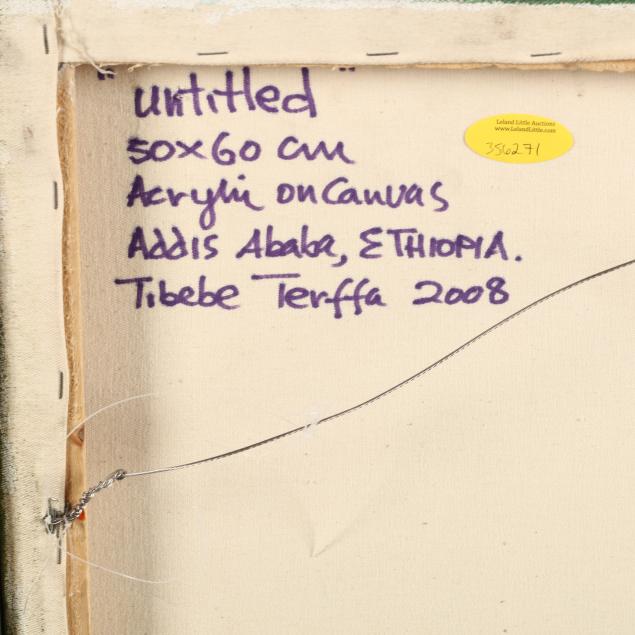 "untitled"
50x60 cm
Acrylic on Canvas
Addis Ababa, ETHIOPIA.
Tibebe Terffa 2008
Leland Little Auctions
www.LelandLittle.com
356271